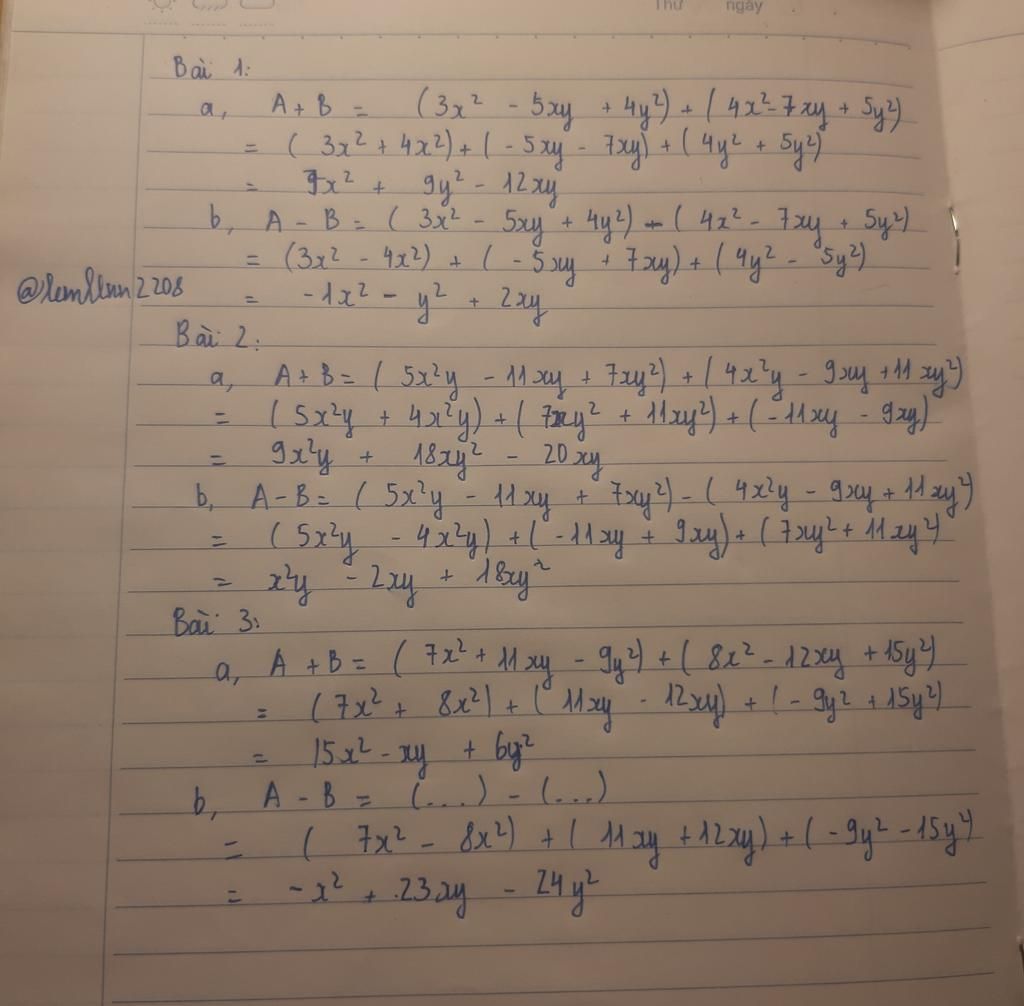 Thứ ngày
Bài 1:
a, A + B = (3x² - 5xy + 4y²) + (4x² - 7xy + 5y²)
= (3x² + 4x²) + (-5xy - 7xy) + (4y² + 5y²)
= 7x² + 9y² - 12xy
b, A - B = (3x² - 5xy + 4y²) - (4x² - 7xy + 5y²)
= (3x² - 4x²) + (-5xy + 7xy) + (4y² - 5y²)
= -1x² - y² + 2xy
Bài 2:
a, A + B = (5x²y - 11xy + 7xy²) + (4x²y - 9xy + 11xy²)
= (5x²y + 4x²y) + (7xy² + 11xy²) + (-11xy - 9xy)
= 9x²y + 18xy² - 20xy
b, A - B = (5x²y - 11xy + 7xy²) - (4x²y - 9xy + 11xy²)
= (5x²y - 4x²y) + (-11xy + 9xy) + (7xy² + 11xy²)
= x²y - 2xy + 18xy²
Bài 3:
a, A + B = (7x² + 11xy - 9y²) + (8x² - 12xy + 15y²)
= (7x² + 8x²) + (11xy - 12xy) + (-9y² + 15y²)
= 15x² - xy + 6y²
b, A - B = (...) - (...)
= (7x² - 8x²) + (11xy + 12xy) + (-9y² - 15y²)
= -x² + 23xy - 24y²